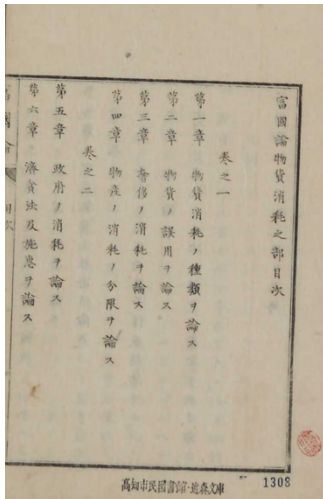 富國論物貨消耗之部目次
卷之一
第一章 物貨消耗ノ種類ヲ論ス
第二章 物貨ノ誤用ヲ論ス
第三章 奢侈ノ消耗ヲ論ス
第四章 物産ノ消耗ノ分限ヲ論ス
卷之二
第五章 政府ノ消耗ヲ論ス
第六章 濟貧法及施惠ヲ論ス
富國論 目次
高知市民図書館・近森文庫
1308